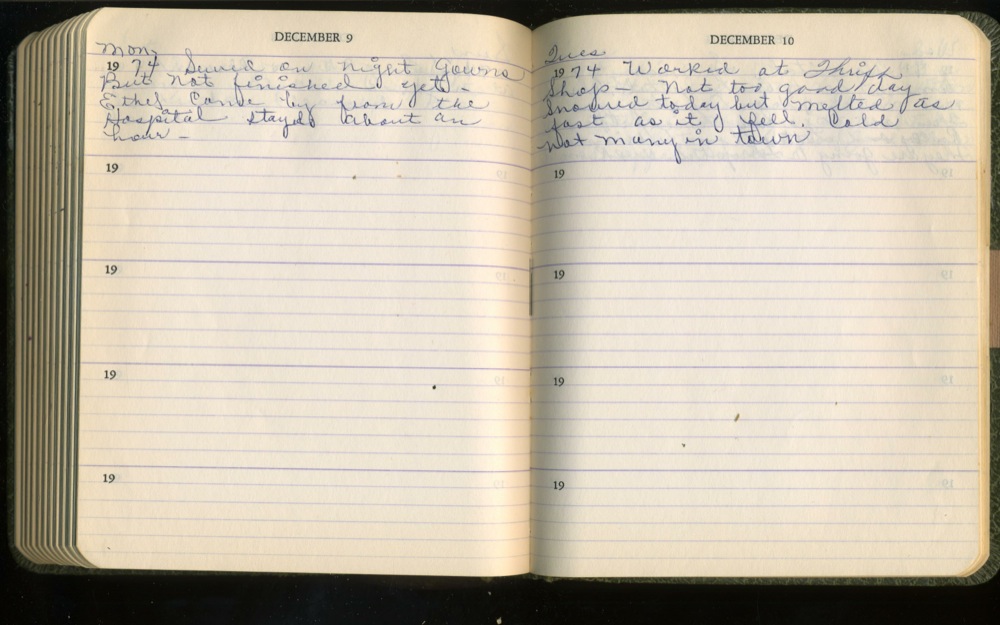 DECEMBER 9
Mon,
1974 Sewed on night gowns
But not finished yet -
Ethel Came by from the
Hospital stayed about an
hour -
19
19
19
19
DECEMBER 10
Tues
1974 Worked at Thrift
Shop - Not too good day
Snowed today but melted as
fast as it fell. Cold
not many in town
19
19
19
19